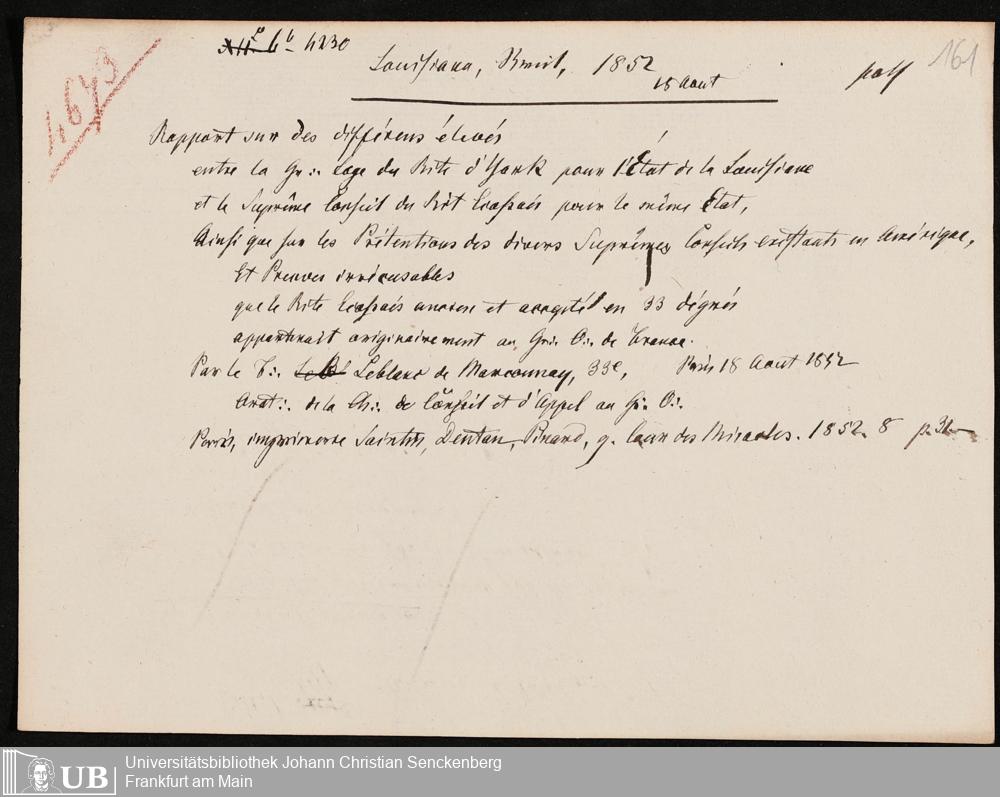 4230
161
4673
Louisiana, 1852
18 Aout
Rapport sur des différens élevés
entre la Gr∴ Loge du Rite d'York pour l'État de la Louisiane
et le Suprême Conseil du Rit Ecossais pour le même État,
Ainsi que sur les Prétentions des divers Suprêmes Conseils existants en Amérique,
Et Preuves irrécusables
que le Rite Ecossais ancien et accepté en 33 dégrés
appartenait originairement au Gr∴ O∴ de France.
Par le F∴ Leblanc de Marconnay, 33e, Paris 18 Aout 1852
Orat∴ de la Ch∴ de Conseil et d'Appel au G∴ O∴
Paris, imprimerie Saintin, Dentan, Pinard, 9. Cour des Miracles. 1852. 8 p. 32
UB
Universitätsbibliothek Johann Christian Senckenberg
Frankfurt am Main